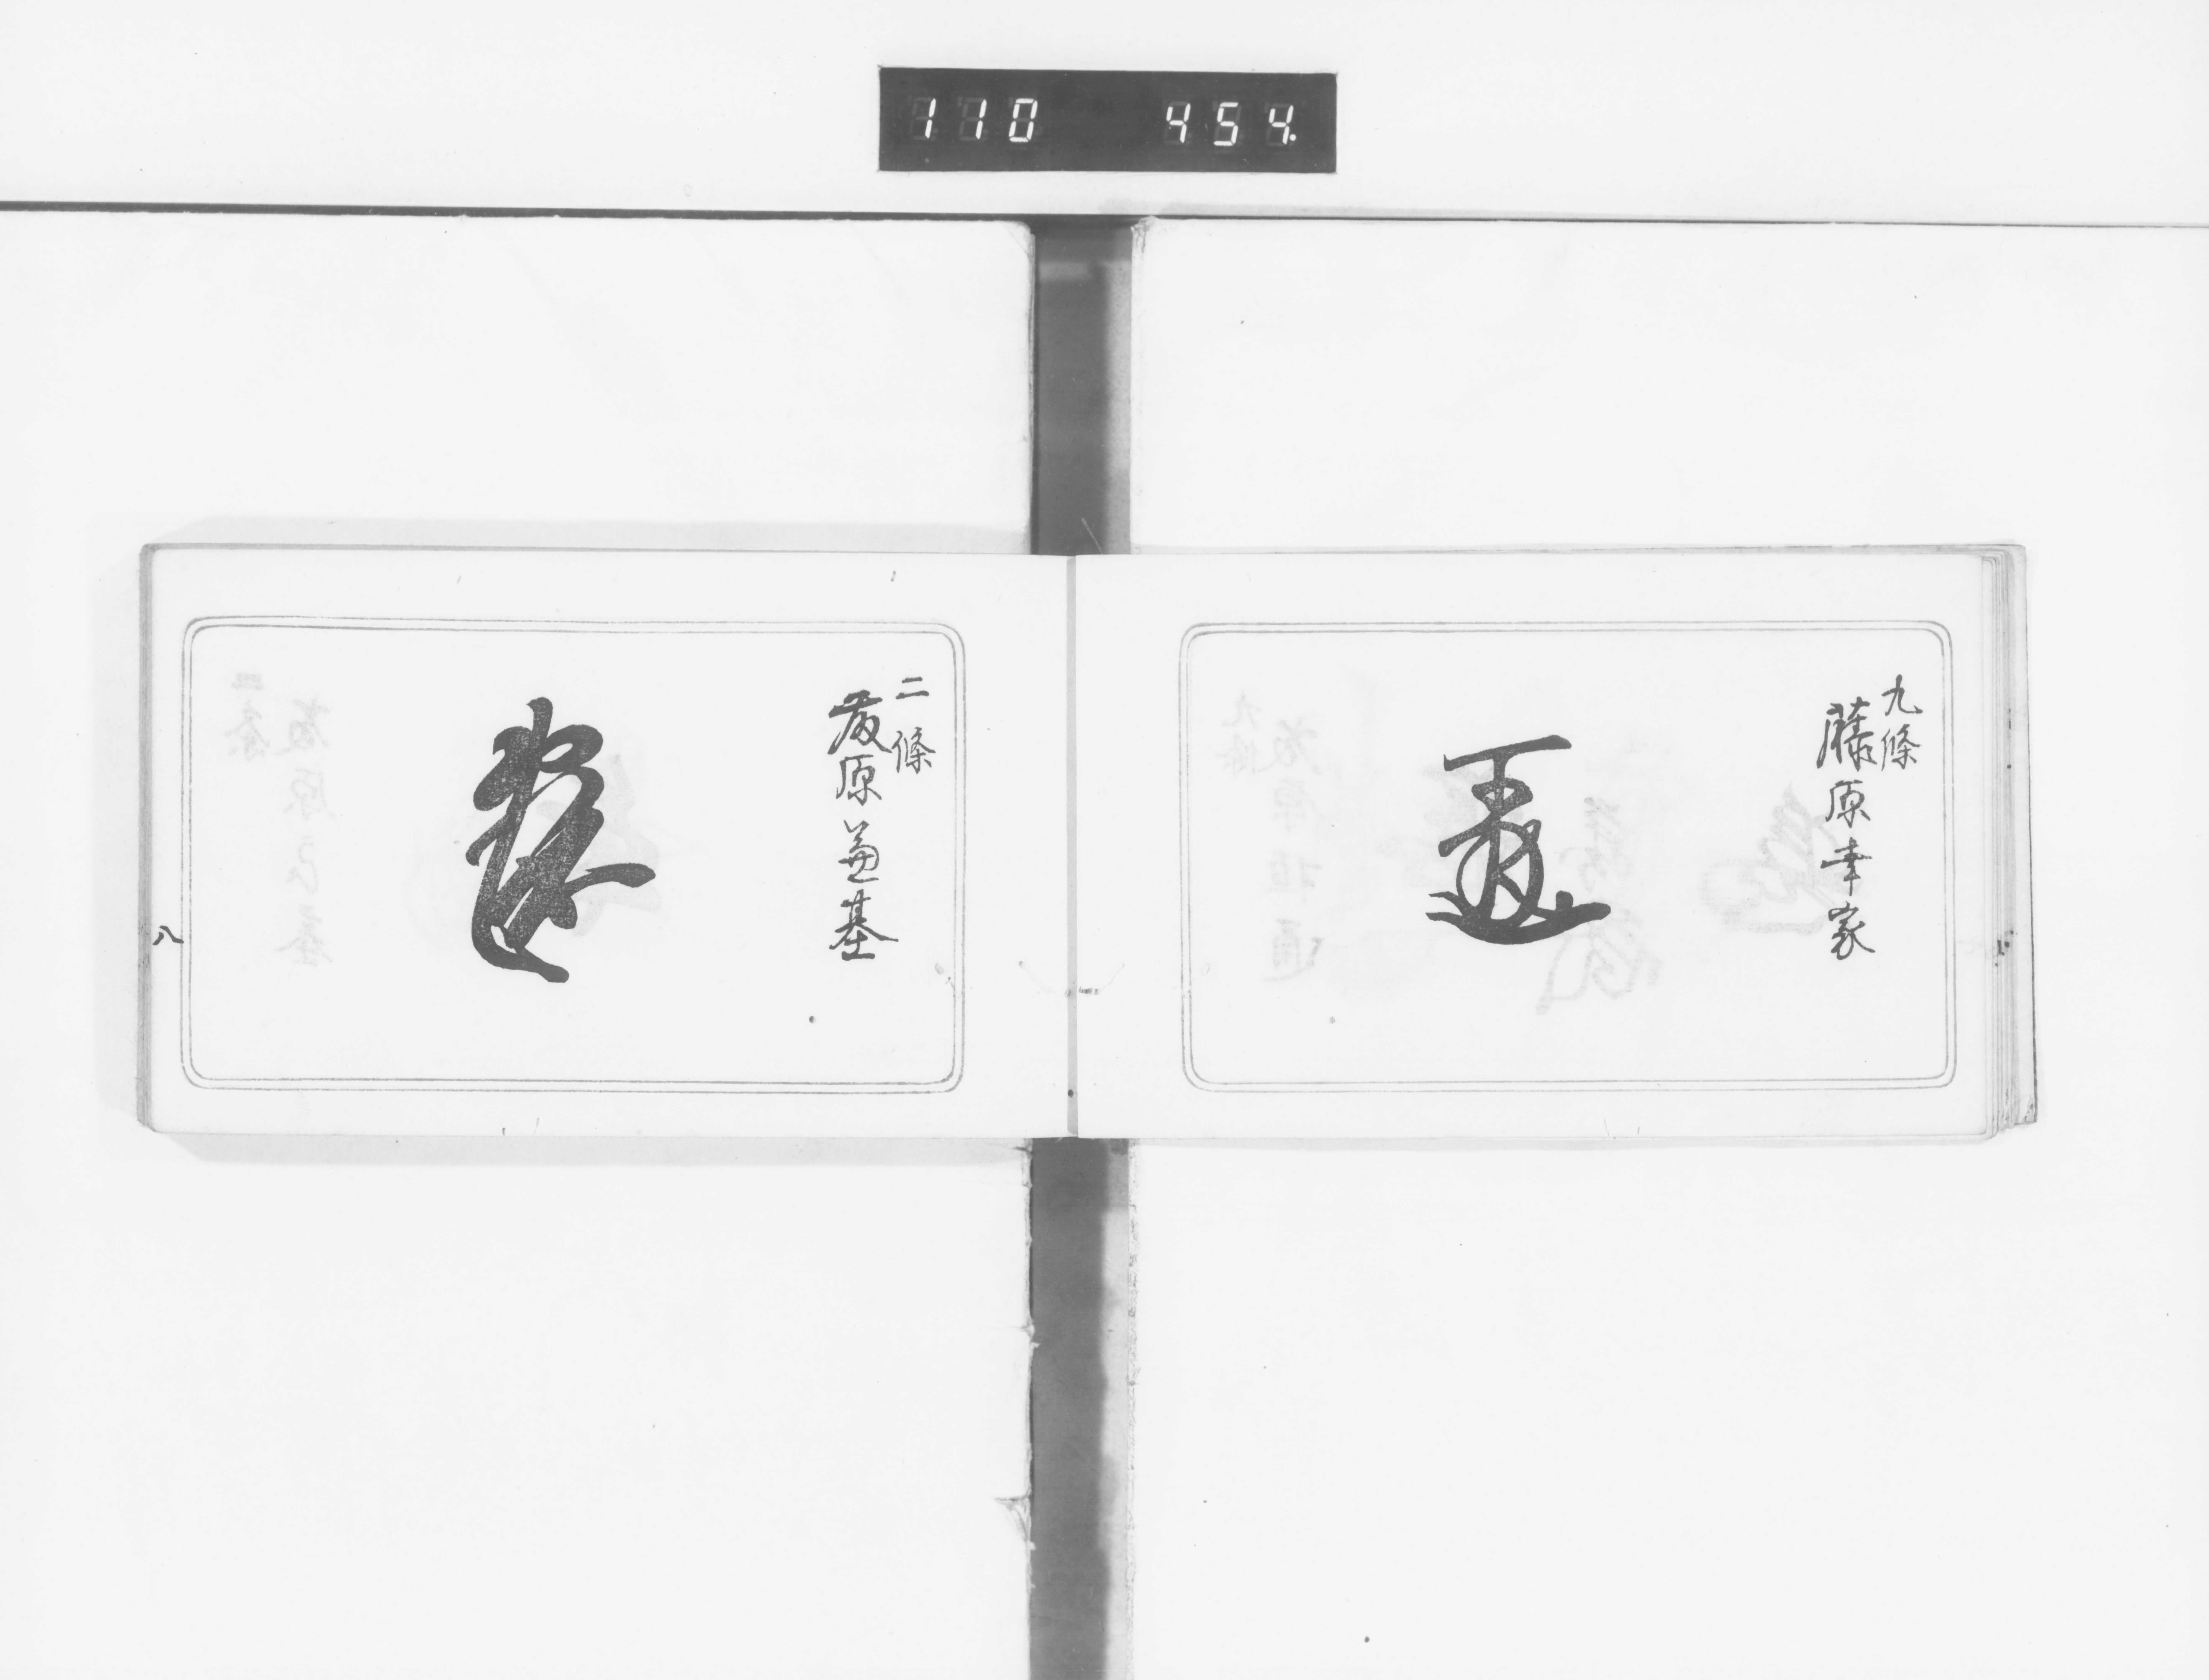 110 454.
九條
藤原幸家
二條
藤原兼基
八